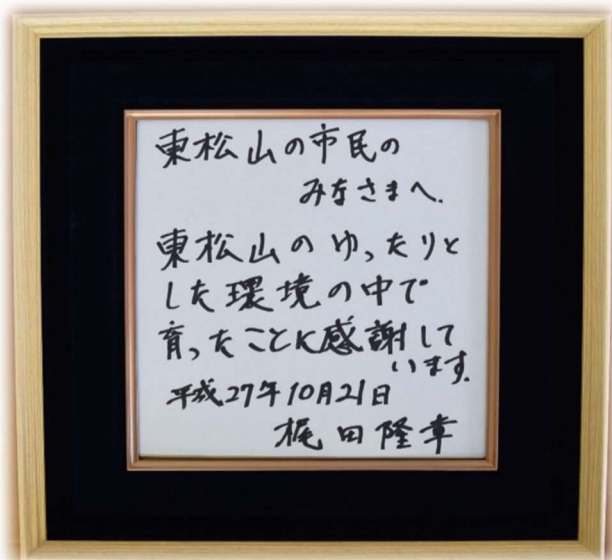 東松山の市民の
みなさまへ.
東松山のゆったりと
した環境の中で
育ったことに感謝して
います.
平成27年10月21日
梶田隆章